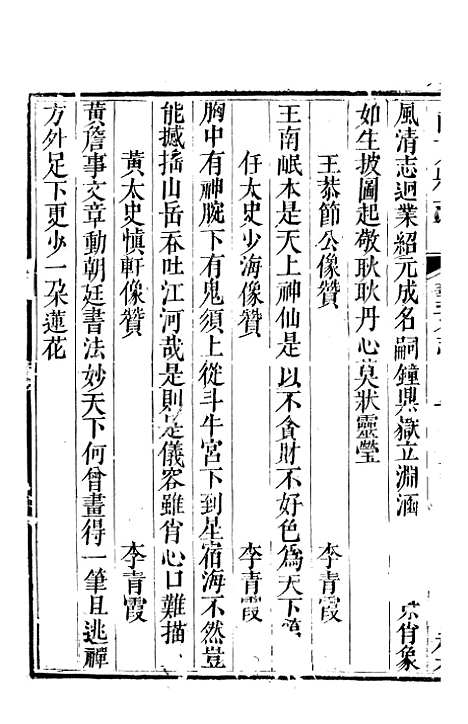 風清志迥業紹元成名嗣鐘鼎嶽立淵涵 肖象
如生披圖起敬耿耿丹心莫狀靈瑩
王恭節公像贊 李青霞
王南岷本是天上神仙是以不貪財不好色為天下
任太史少海像贊 李青霞
胸中有神腕下有鬼須上從斗牛宮下到星宿海不然豈
能撼搖山岳吞吐江河哉是則是儀容雖肖心口難描
黃太史慎軒像贊 李青霞
黃詹事文章動朝廷書法妙天下何曾畫得一筆且逃禪
方外足下更少一朶蓮花